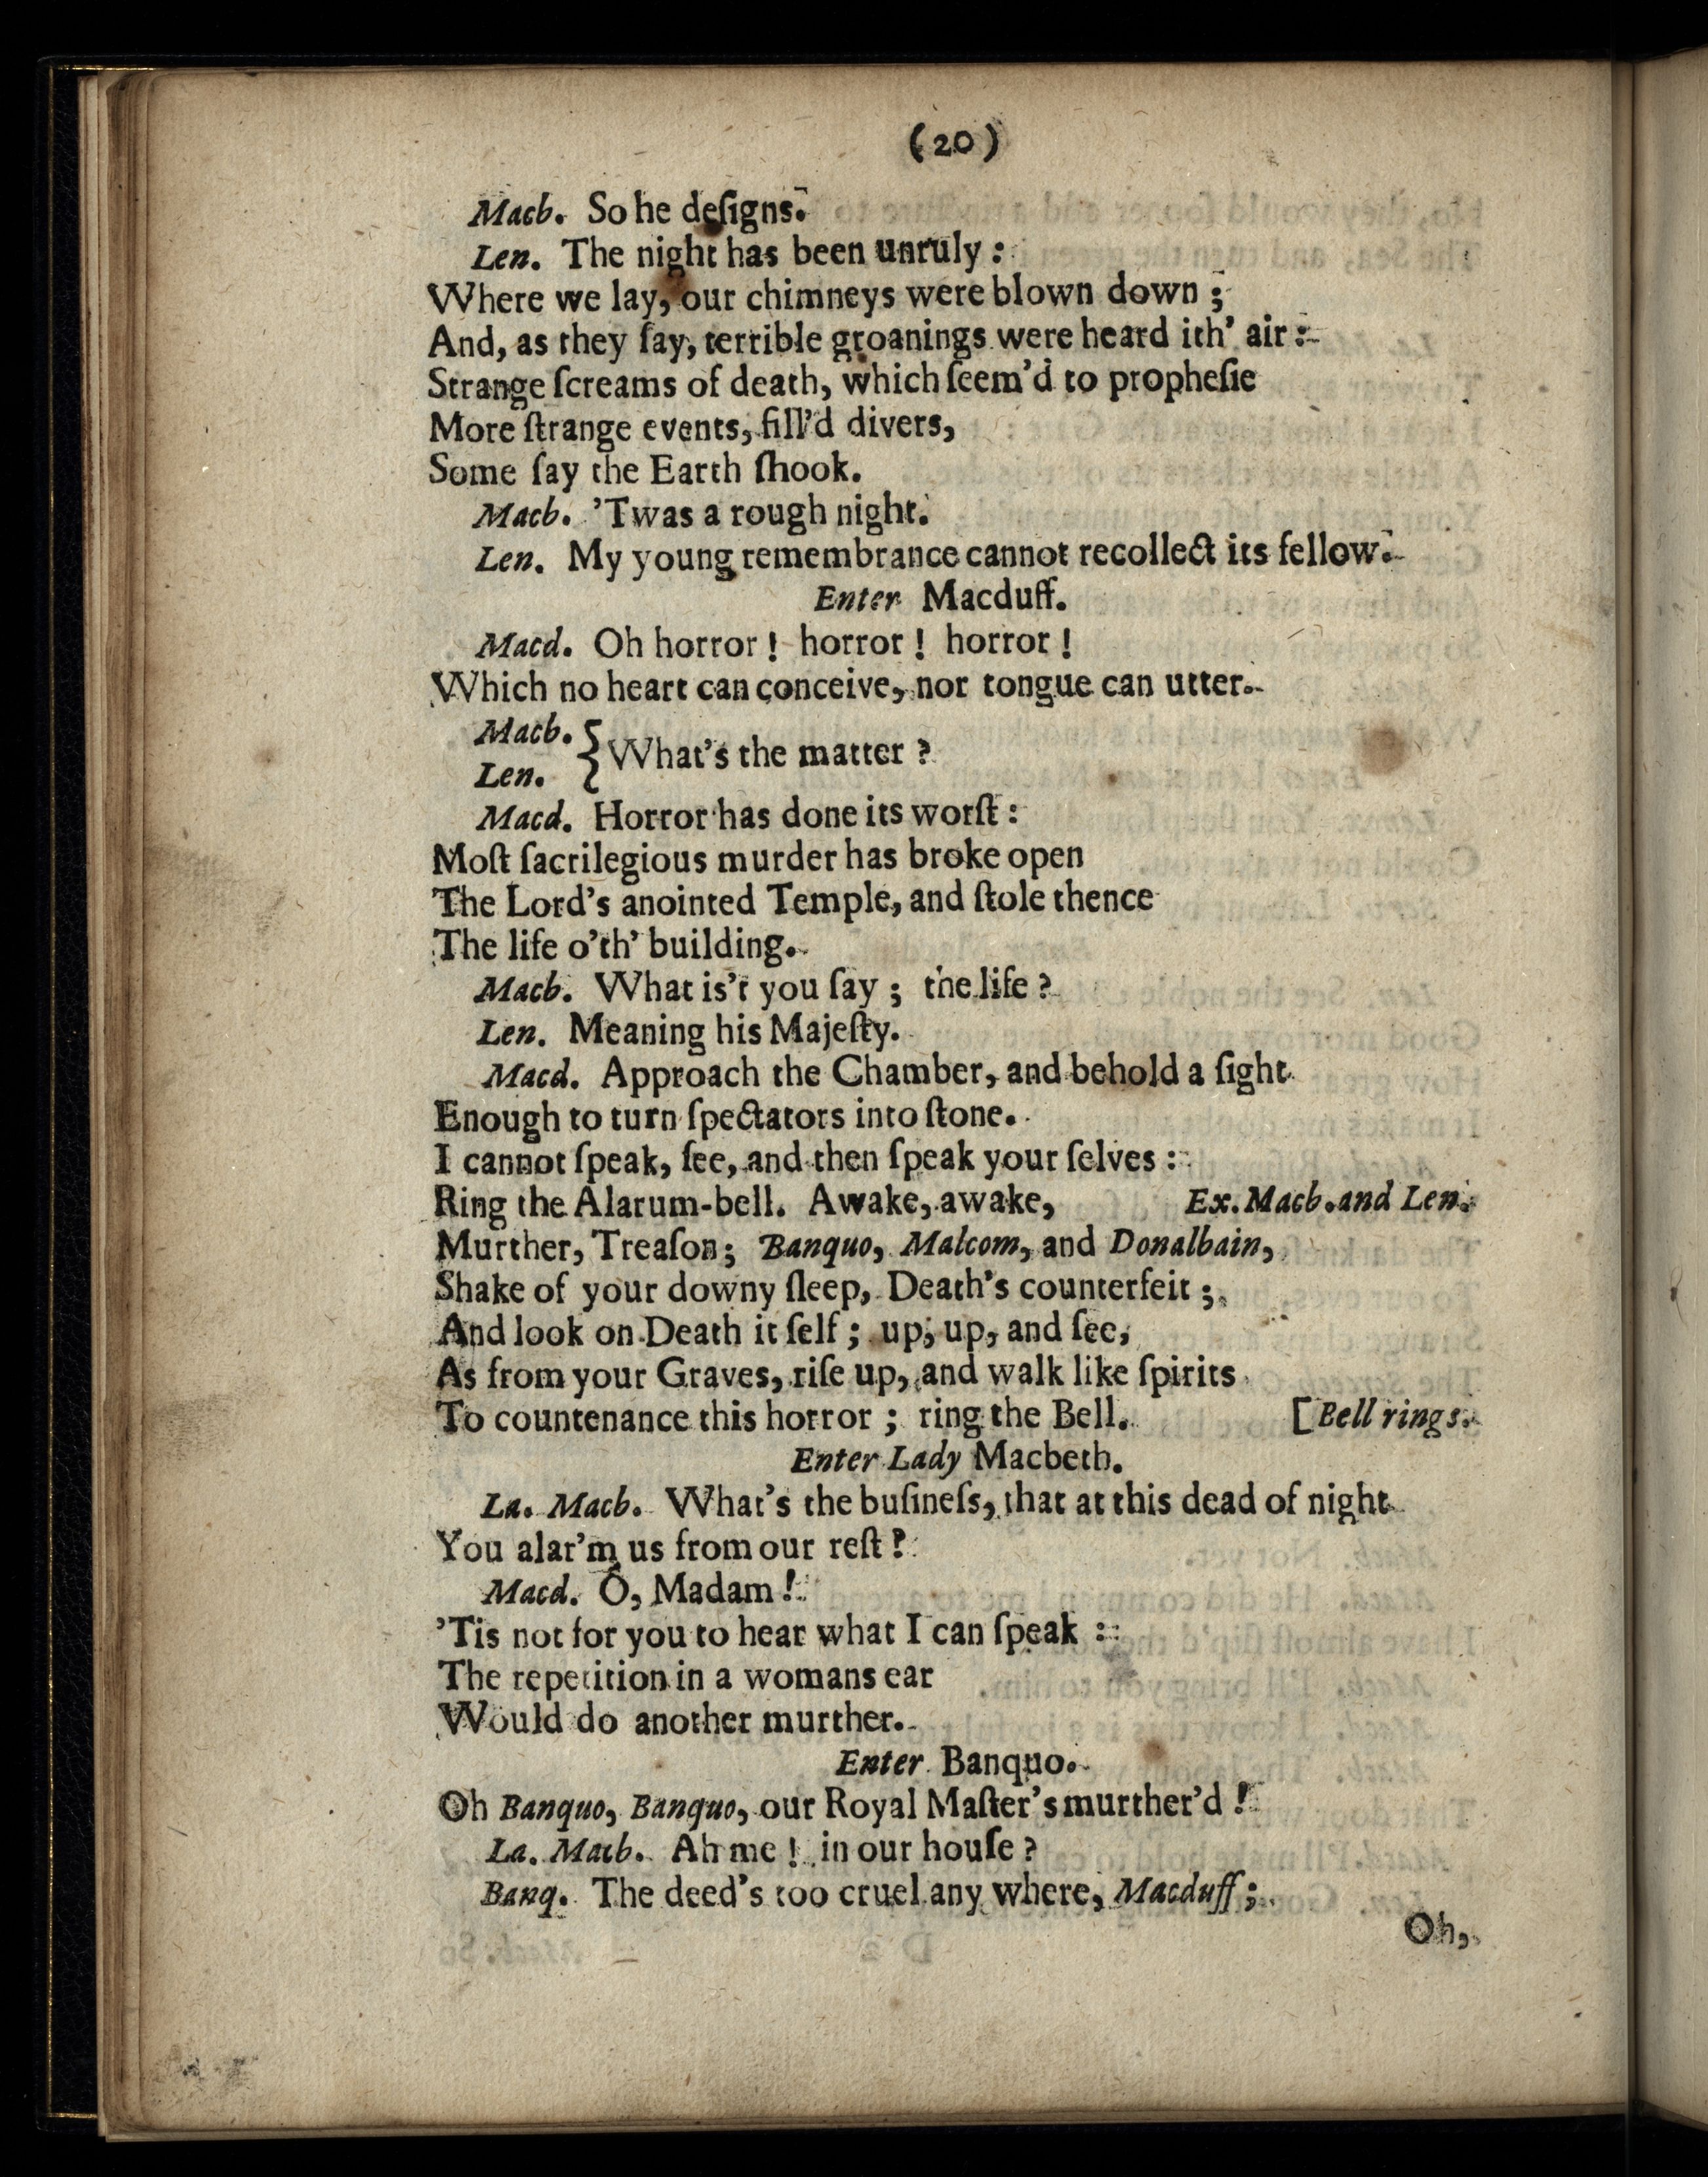 (20)
Macb. So he deſigns.
Len. The night has been unruly :
Where we lay, our chimneys were blown down ;
And, as they ſay, terrible groanings were heard ith' air :
Strange ſcreams of death, which ſeem'd to propheſie
More ſtrange events, fill'd divers,
Some ſay the Earth ſhook.
Macb. 'Twas a rough night.
Len. My young remembrance cannot recollect its fellow.
Enter Macduff.
Macd. Oh horror ! horror ! horror !
Which no heart can conceive, nor tongue can utter.
Macb.
Len. } What's the matter ?
Macd. Horror has done its worſt :
Moſt ſacrilegious murder has broke open
The Lord's anointed Temple, and ſtole thence
The life o'th' building.
Macb. What is't you ſay ; the life ?
Len. Meaning his Majeſty.
Macd. Approach the Chamber, and behold a ſight
Enough to turn ſpectators into ſtone.
I cannot ſpeak, ſee, and then ſpeak your ſelves :
Ring the Alarum-bell. Awake, awake, Ex. Macb. and Len.
Murther, Treaſon ; Banquo, Malcom, and Donalbain,
Shake of your downy ſleep, Death's counterfeit ;
And look on Death it ſelf ; up, up, and ſee,
As from your Graves, riſe up, and walk like ſpirits
To countenance this horror ; ring the Bell. [Bell rings.
Enter Lady Macbeth.
La. Macb. What's the buſineſs, that at this dead of night
You alar'm us from our reſt ?
Macd. O, Madam !
'Tis not for you to hear what I can ſpeak :
The repetition in a womans ear
Would do another murther.
Enter Banquo.
Oh Banquo, Banquo, our Royal Maſter's murther'd !
La. Macb. Ah me ! in our houſe ?
Banq. The deed's too cruel any where, Macduff ;
Oh,